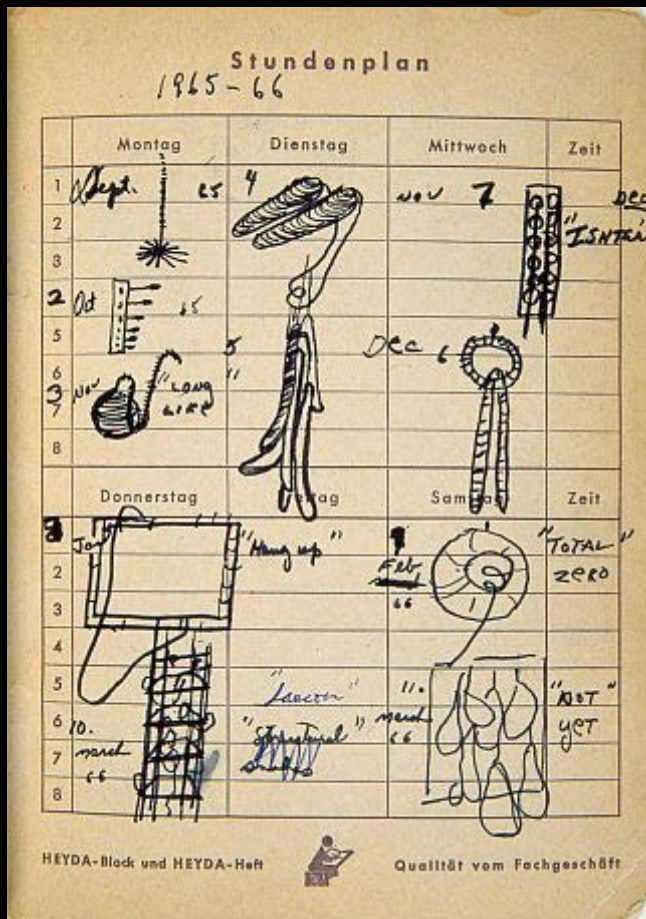 Stundenplan
1965-66
Montag Dienstag Mittwoch Zeit
1 Sept. 65 4 Nov 7 Dec
2 "ISHTAR
3
2 Oct 65
5 5 Dec 6
6
3 Nov "LONG
7 LIFE"
8
Donnerstag Freitag Samstag Zeit
Jan "Hang up" 9 "TOTAL"
2 Feb ZERO
3 66
4
5 "Laocoon" 11. "NOT"
6 10. March yet
march 66
7
66
8
HEYDA-Block und HEYDA-Heft Qualität vom Fachgeschäft